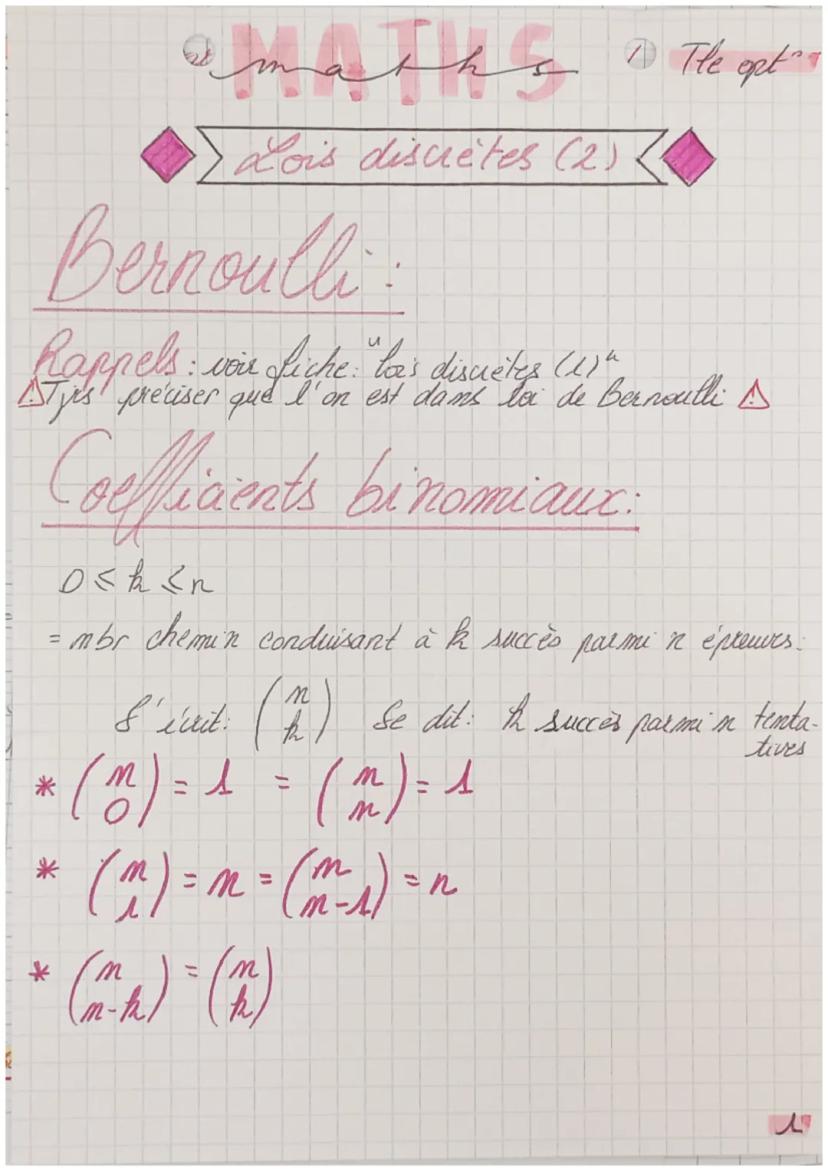 MATHS
maths
Tle opt°
Lois discrètes (2)
Bernoulli :
Rappels : voir fiche : "lois discrètes (1)"
⚠ Tjrs préciser que l'on est dans loi de Bernoulli ⚠
Coefficients binomiaux :
0 ≤ k ≤ n
= nbr chemin conduisant à k succès parmi n épreuves.
S'écrit : (n k) Se dit : k succès parmi n tenta-
tives
* (n 0) = 1 = (n n) = 1
* (n 1) = n = (n n-1) = n
* (n n-k) = (n k)
1